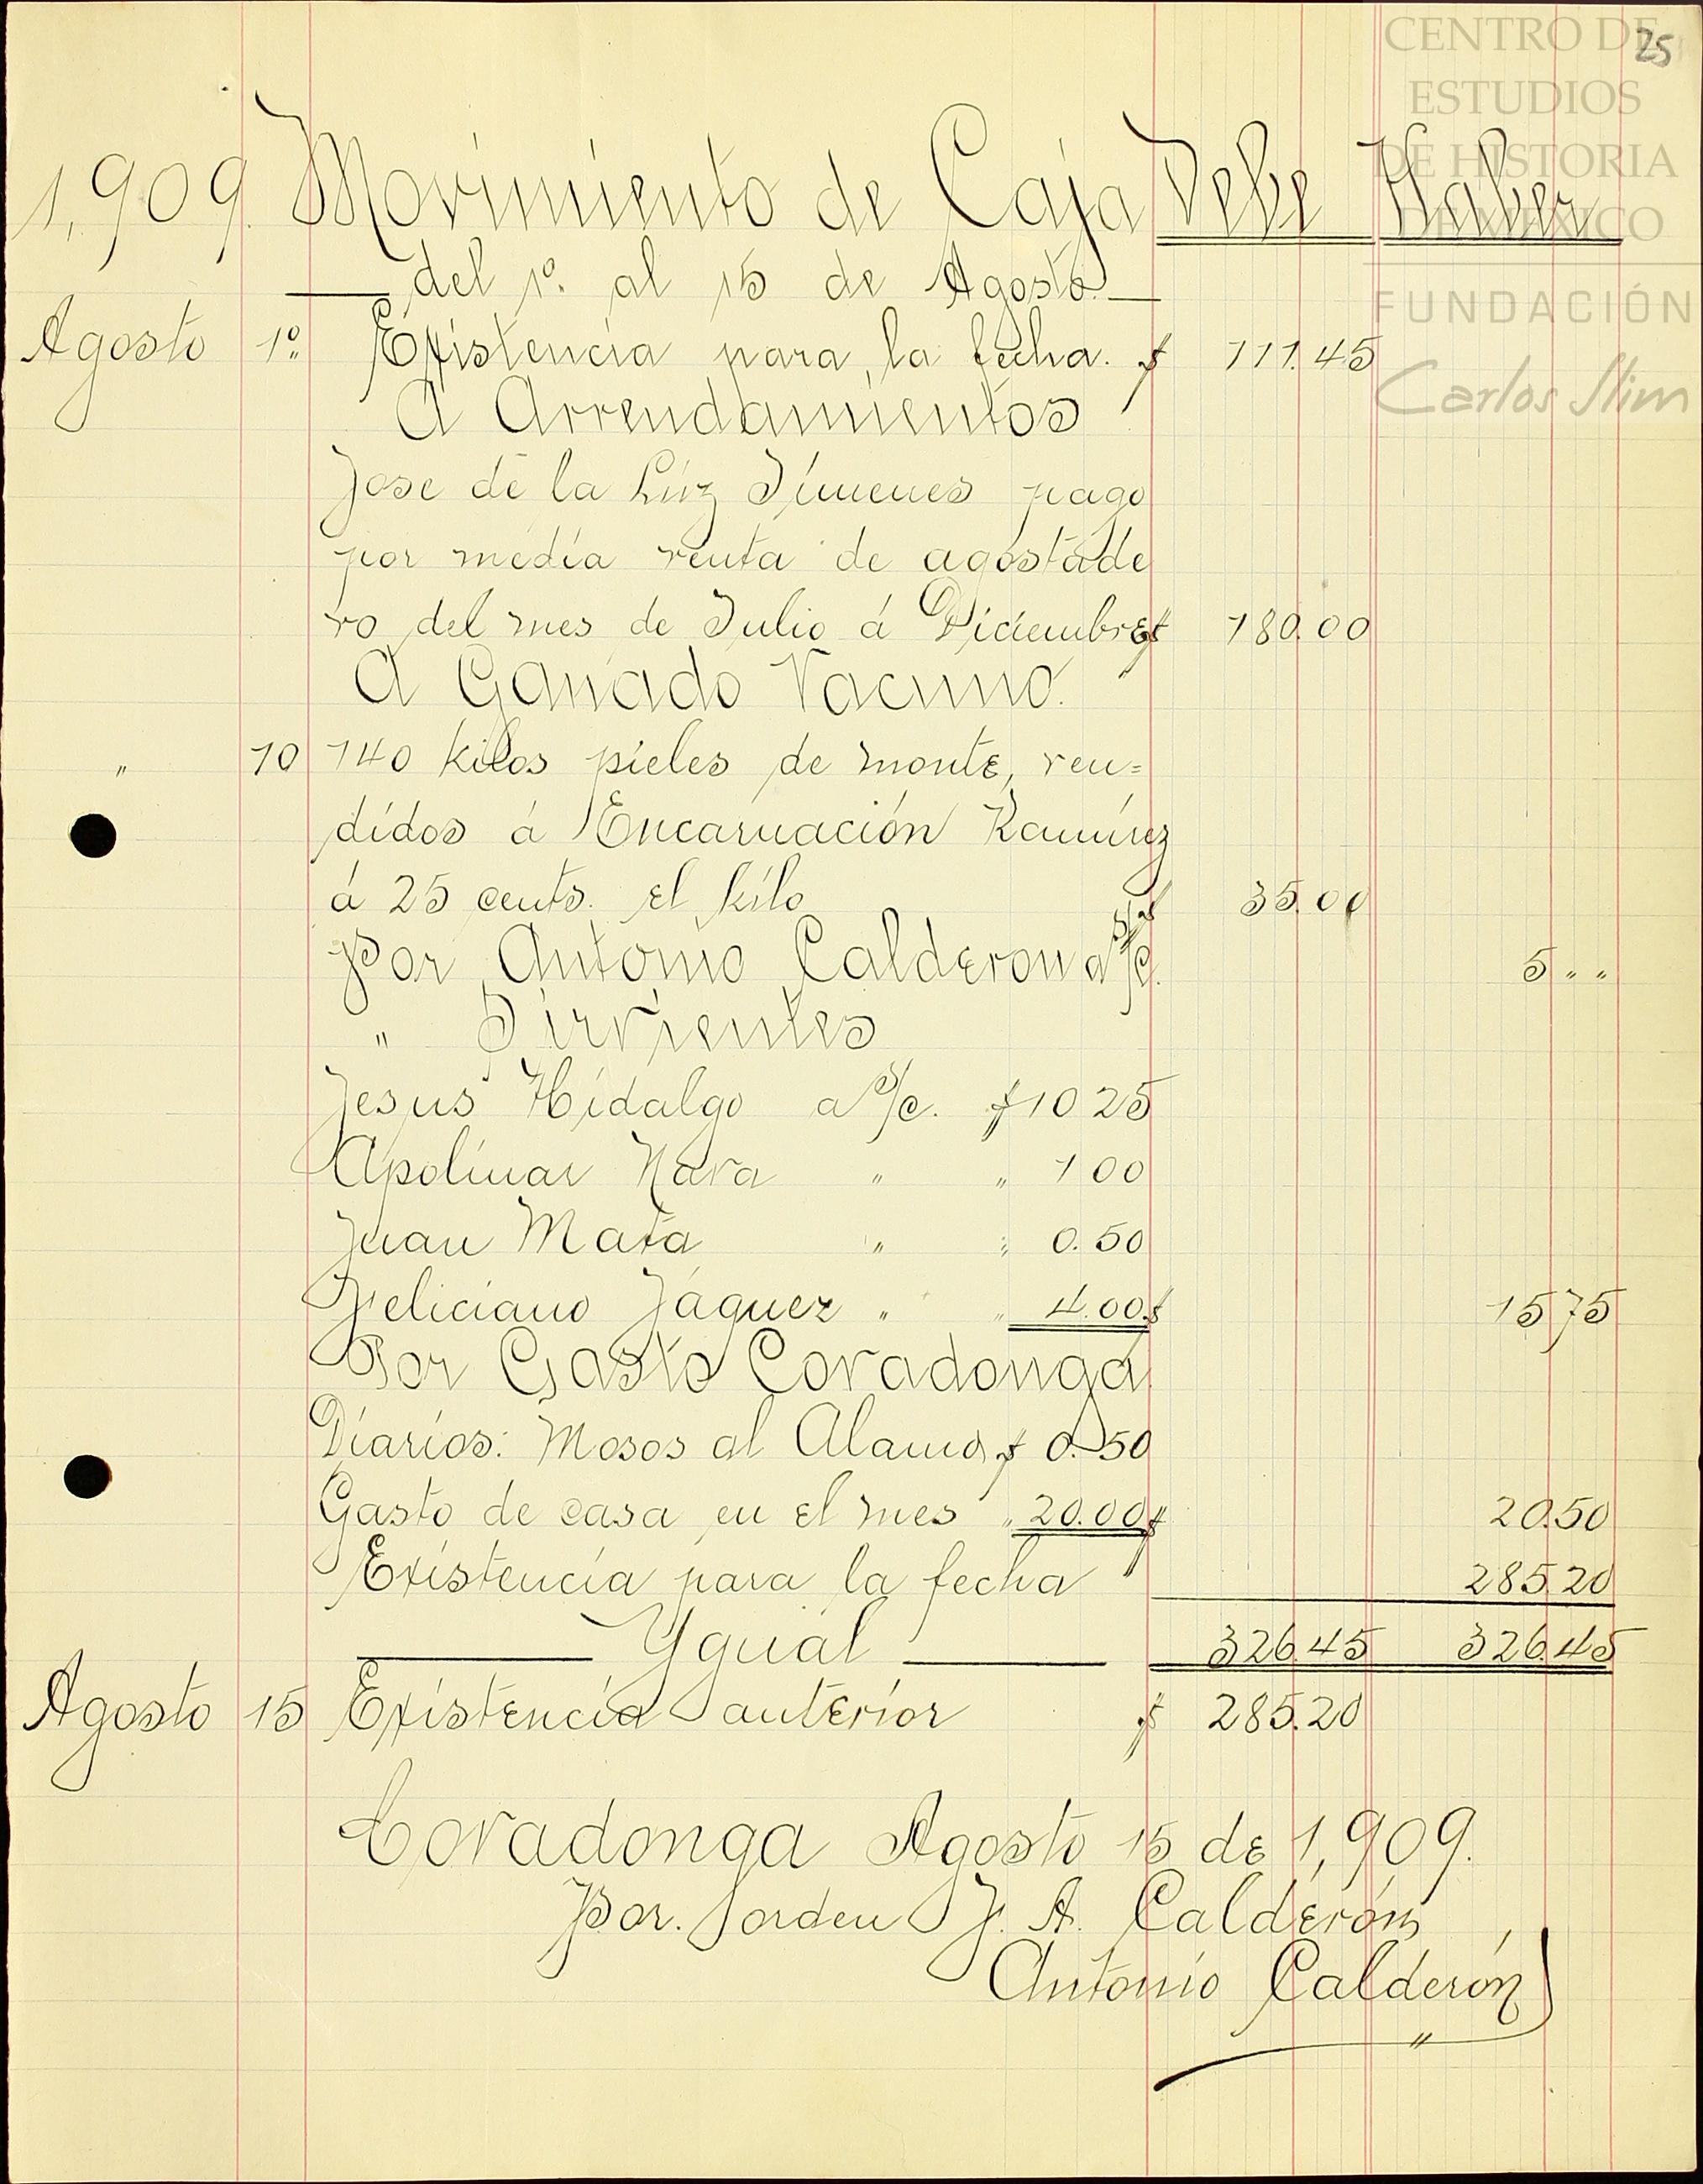 CENTRO DE
ESTUDIOS
DE HISTORIA
DE MÉXICO
FUNDACIÓN
Carlos Slim
25
1,909. Movimiento de Caja Debe Haber
del 1º. al 15 de Agosto
Agosto 1º. Existencia para la fecha. $ 111.45
A Arrendamientos
Jose de la Luz Jimenes pago
por media renta de agostade
ro del mes de Julio á Diciembre $ 180.00
A Ganado Vacuno.
" 10 140 kilos pieles de monte, ven=
didos á Encarnación Ramírez
á 25 cents. el kilo $ 35.00
Por Antonio Calderon a s/c. $ 5 " "
" Sirvientes
Jesus Hidalgo a s/c. $ 10 25
Apolinar Nava " " 1 00
Juan Mata " " 0.50
Feliciano Jáquez " " 4.00 $ 15 75
Por Gasto Covadonga
Diarios: Mosos al Alamo $ 0.50
Gasto de casa en el mes " 20.00 $ 20.50
Existencia para la fecha " 285.20
Ygual 326.45 326.45
Agosto 15 Existencia anterior $ 285.20
Covadonga Agosto 15 de 1,909.
Por. orden J. A. Calderón,
Antonio Calderón